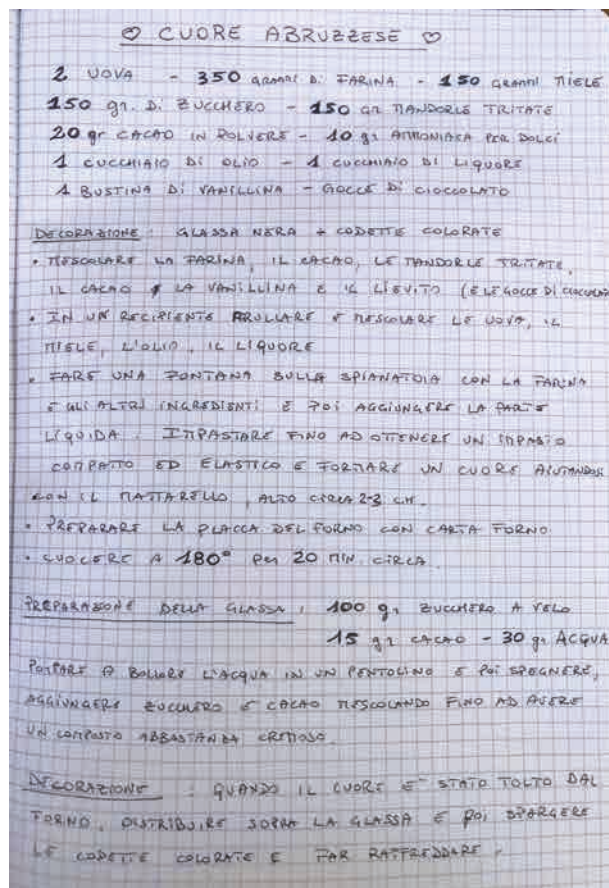 ♡ CUORE ABRUZZESE ♡
2 UOVA - 350 GRAMMI DI FARINA - 150 GRAMMI MIELE
150 gr. DI ZUCCHERO - 150 gr MANDORLE TRITATE
20 gr CACAO IN POLVERE - 10 gr AMMONIACA PER DOLCI
1 CUCCHIAIO DI OLIO - 1 CUCCHIAIO DI LIQUORE
1 BUSTINA DI VANILLINA - GOCCE DI CIOCCOLATO
DECORAZIONE: GLASSA NERA + CODETTE COLORATE
• MESCOLARE LA FARINA, IL CACAO, LE MANDORLE TRITATE,
IL CACAO LA VANILLINA E IL LIEVITO (E LE GOCCE DI CIOCCOLATO
• IN UN RECIPIENTE FRULLARE E MESCOLARE LE UOVA, IL
MIELE, L'OLIO, IL LIQUORE
• FARE UNA FONTANA SULLA SPIANATOIA CON LA FARINA
E GLI ALTRI INGREDIENTI E POI AGGIUNGERE LA PARTE
LIQUIDA. IMPASTARE FINO AD OTTENERE UN IMPASTO
COMPATTO ED ELASTICO E FORMARE UN CUORE AIUTANDOSI
CON IL MATTARELLO, ALTO CIRCA 2-3 CM.
• PREPARARE LA PLACCA DEL FORNO CON CARTA FORNO.
• CUOCERE A 180° PER 20 MIN. CIRCA.
PREPARAZIONE DELLA GLASSA: 100 gr ZUCCHERO A VELO
15 gr CACAO - 30 gr ACQUA
PORTARE A BOLLORE L'ACQUA IN UN PENTOLINO E POI SPEGNERE,
AGGIUNGERE ZUCCHERO E CACAO MESCOLANDO FINO AD AVERE
UN COMPOSTO ABBASTANZA CREMOSO.
DECORAZIONE: QUANDO IL CUORE E' STATO TOLTO DAL
FORNO, DISTRIBUIRE SOPRA LA GLASSA E POI SPARGERE
LE CODETTE COLORATE E FAR RAFFREDDARE.